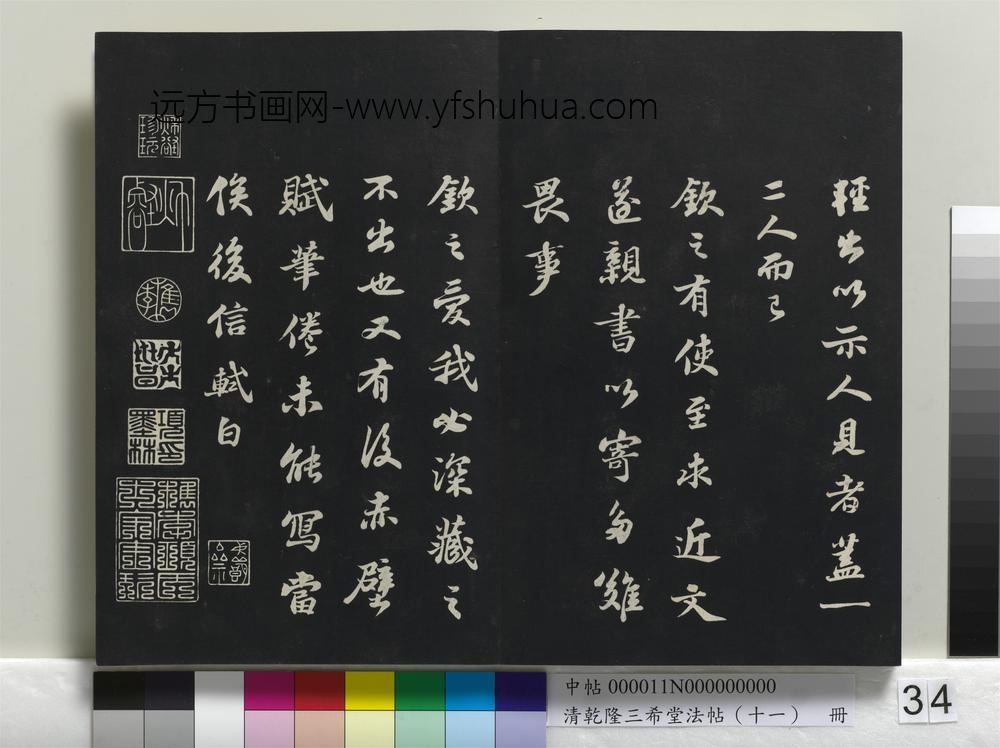 远方书画网-www.yfshuhua.com
輕出以示人見者蓋一
二人而已
欽之有使至求近文
遂親書以寄多難
畏事
欽之愛我必深藏之
不出也又有後赤壁
賦筆倦未能寫當
俟後信軾白
項墨林印
中帖 000011N000000000
清乾隆三希堂法帖（十一） 冊
34